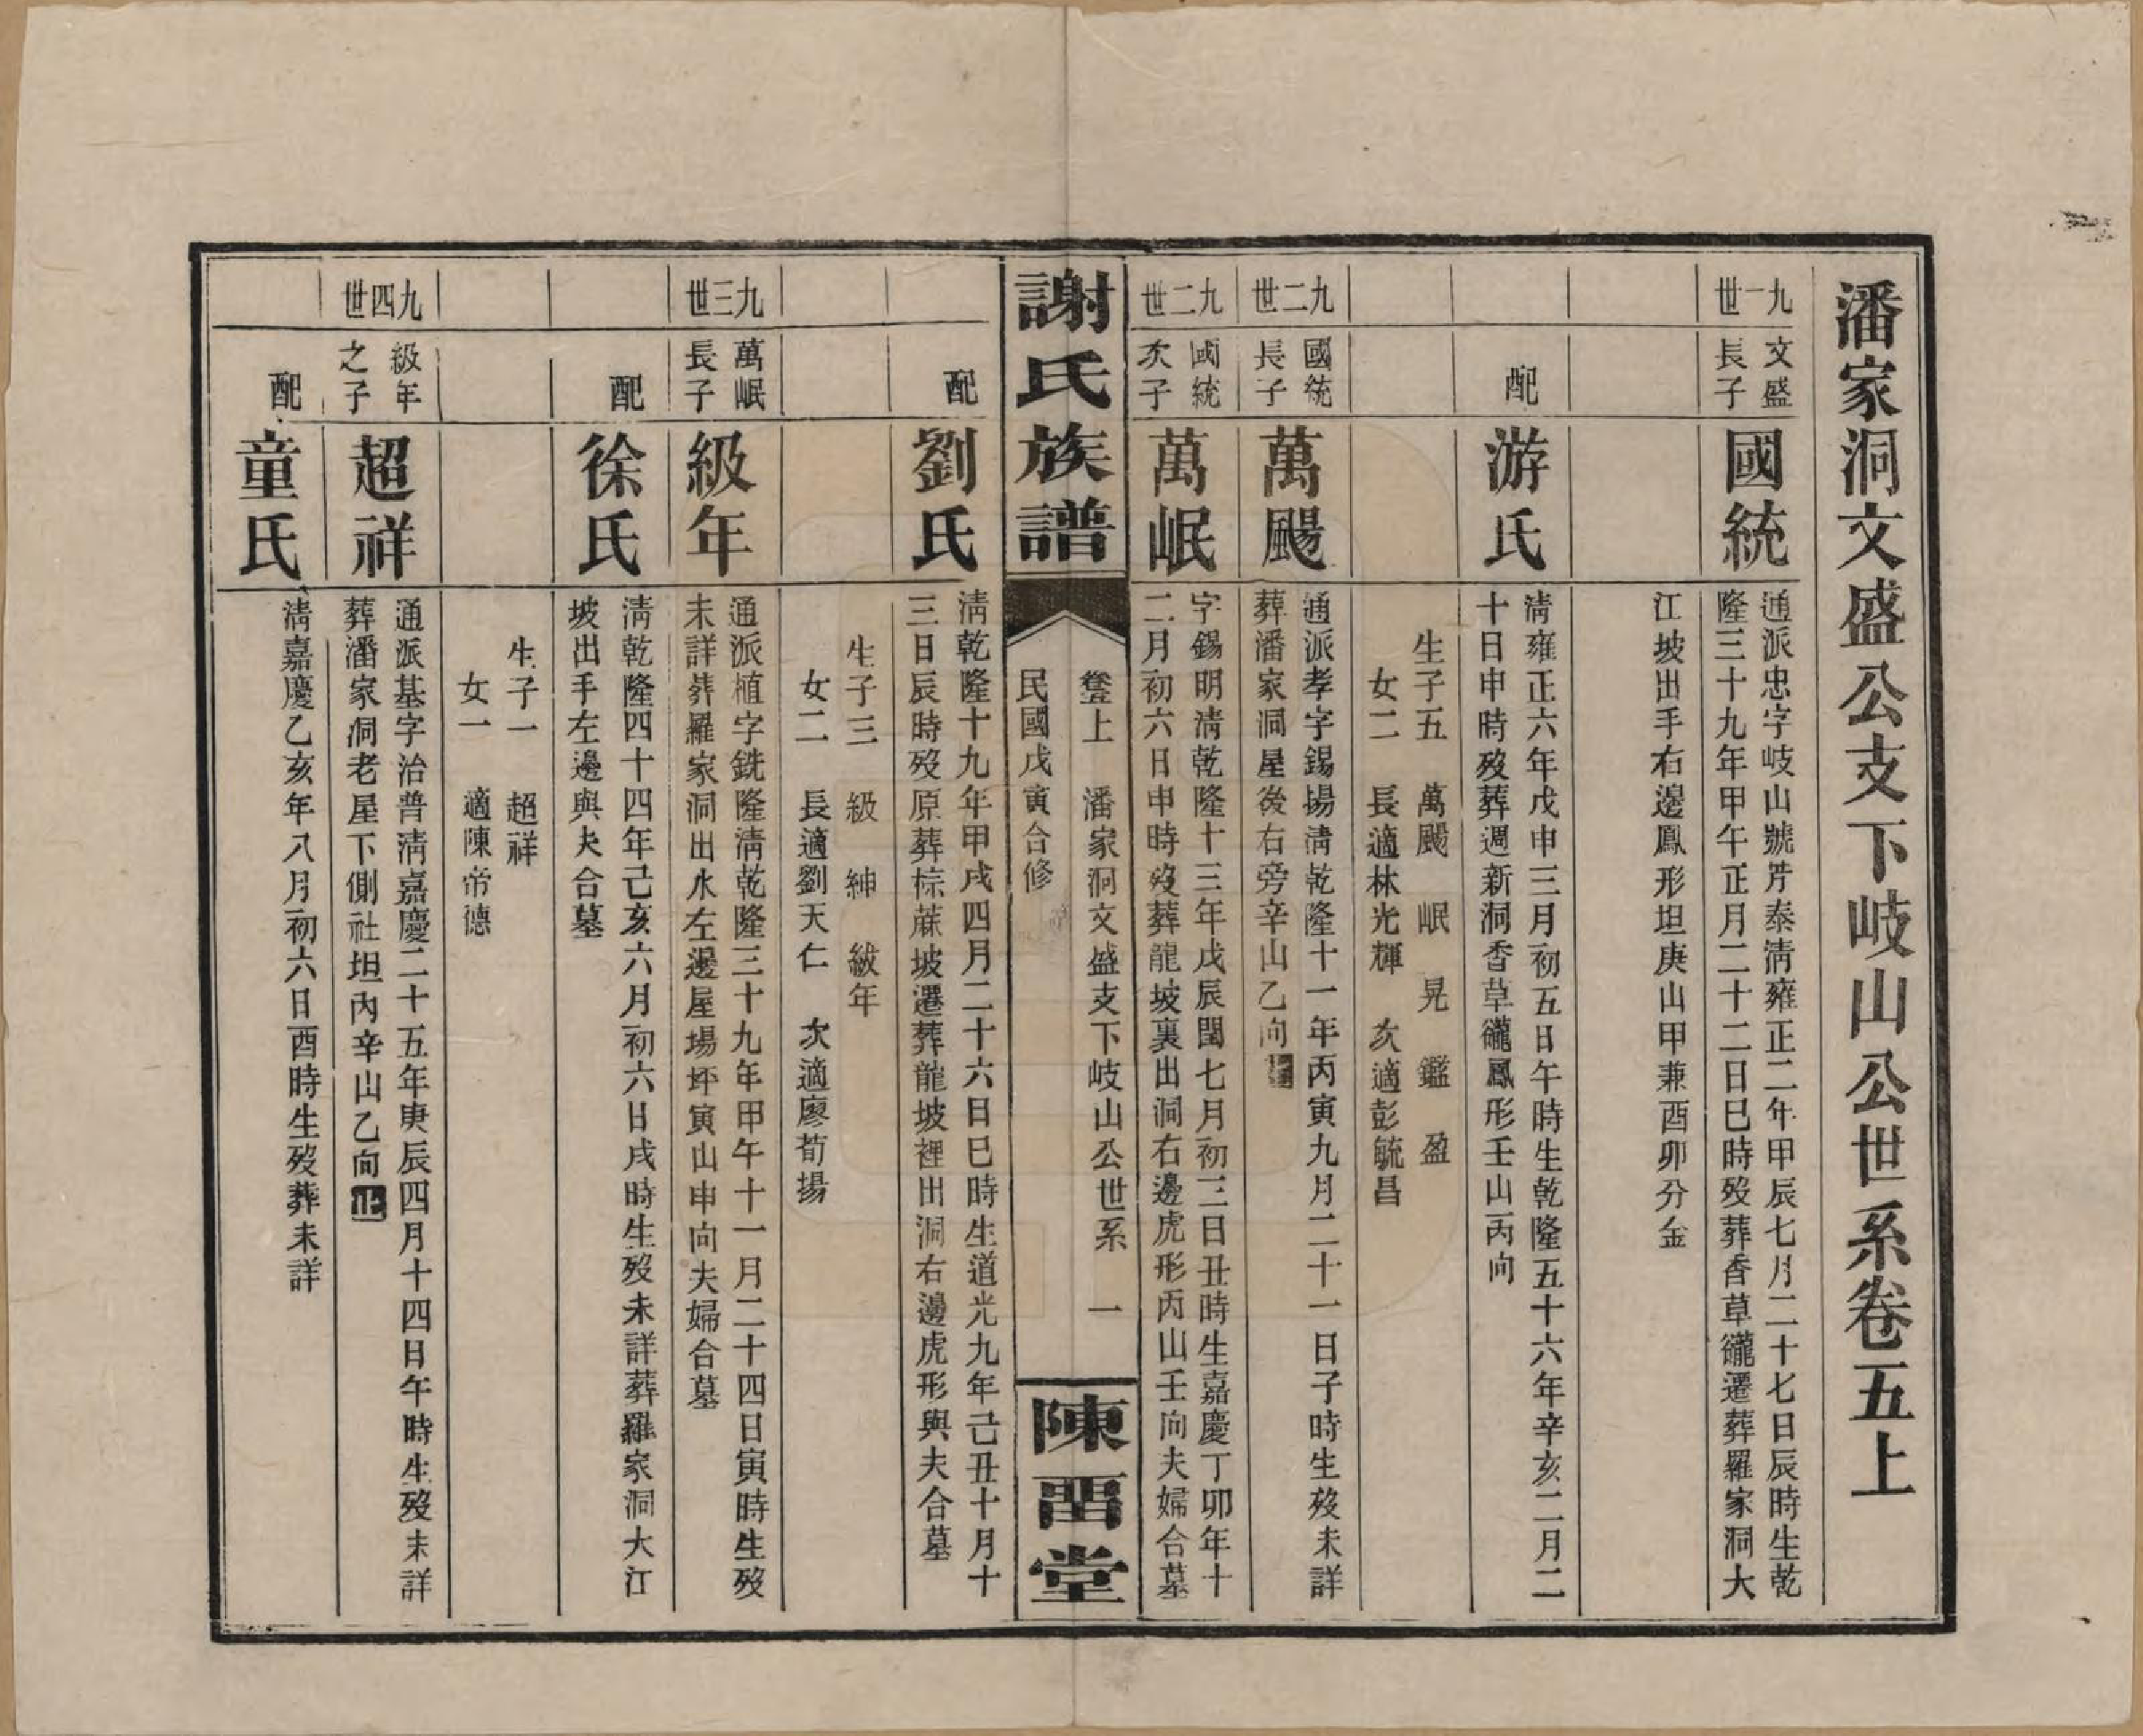 潘家洞文盛公支下岐山公世系卷五上
九一世
文盛
長子
國統
通派忠字岐山號芹泰淸雍正二年甲辰七月二十七日辰時生乾
隆三十九年甲午正月二十二日巳時歿葬香草𥖨遷葬羅家洞大
江坡出手右邊鳳形坦庚山甲兼酉卯分金
配
游氏
淸雍正六年戊申三月初五日午時生乾隆五十六年辛亥二月二
十日申時歿葬週新洞香草𥖨鳳形壬山丙向
生子五 萬颺 岷 晃 鑑 盈
女二 長適林光輝 次適彭毓昌
九二世
國統
長子
萬颺
通派孝字錫揚淸乾隆十一年丙寅九月二十一日子時生歿未詳
葬潘家洞屋後右旁辛山乙向
九二世
國統
次子
萬岷
字錫明淸乾隆十三年戊辰閏七月初三日丑時生嘉慶丁卯年十
二月初六日申時歿葬龍坡裏出洞右邊虎形丙山壬向夫婦合墓
謝氏族譜
卷五上 潘家洞文盛支下岐山公世系 一
民國戊寅合修
陳留堂
配
劉氏
淸乾隆十九年甲戌四月二十六日巳時生道光九年己丑十月十
三日辰時歿原葬棕蔴坡遷葬龍坡裡出洞右邊虎形與夫合墓
生子三 級 紳 紱年
女二 長適劉天仁 次適廖荀揚
九三世
萬岷
長子
級年
通派植字銑隆淸乾隆三十九年甲午十一月二十四日寅時生歿
未詳葬羅家洞出水左邊屋場坪寅山申向夫婦合墓
配
徐氏
淸乾隆四十四年己亥六月初六日戌時生歿未詳葬羅家洞大江
坡出手左邊與夫合墓
生子一 超祥
女一 適陳帝德
九四世
級年
之子
超祥
通派基字治普淸嘉慶二十五年庚辰四月十四日午時生歿未詳
葬潘家洞老屋下側社坦內辛山乙向止
配
童氏
淸嘉慶乙亥年八月初六日酉時生歿葬未詳